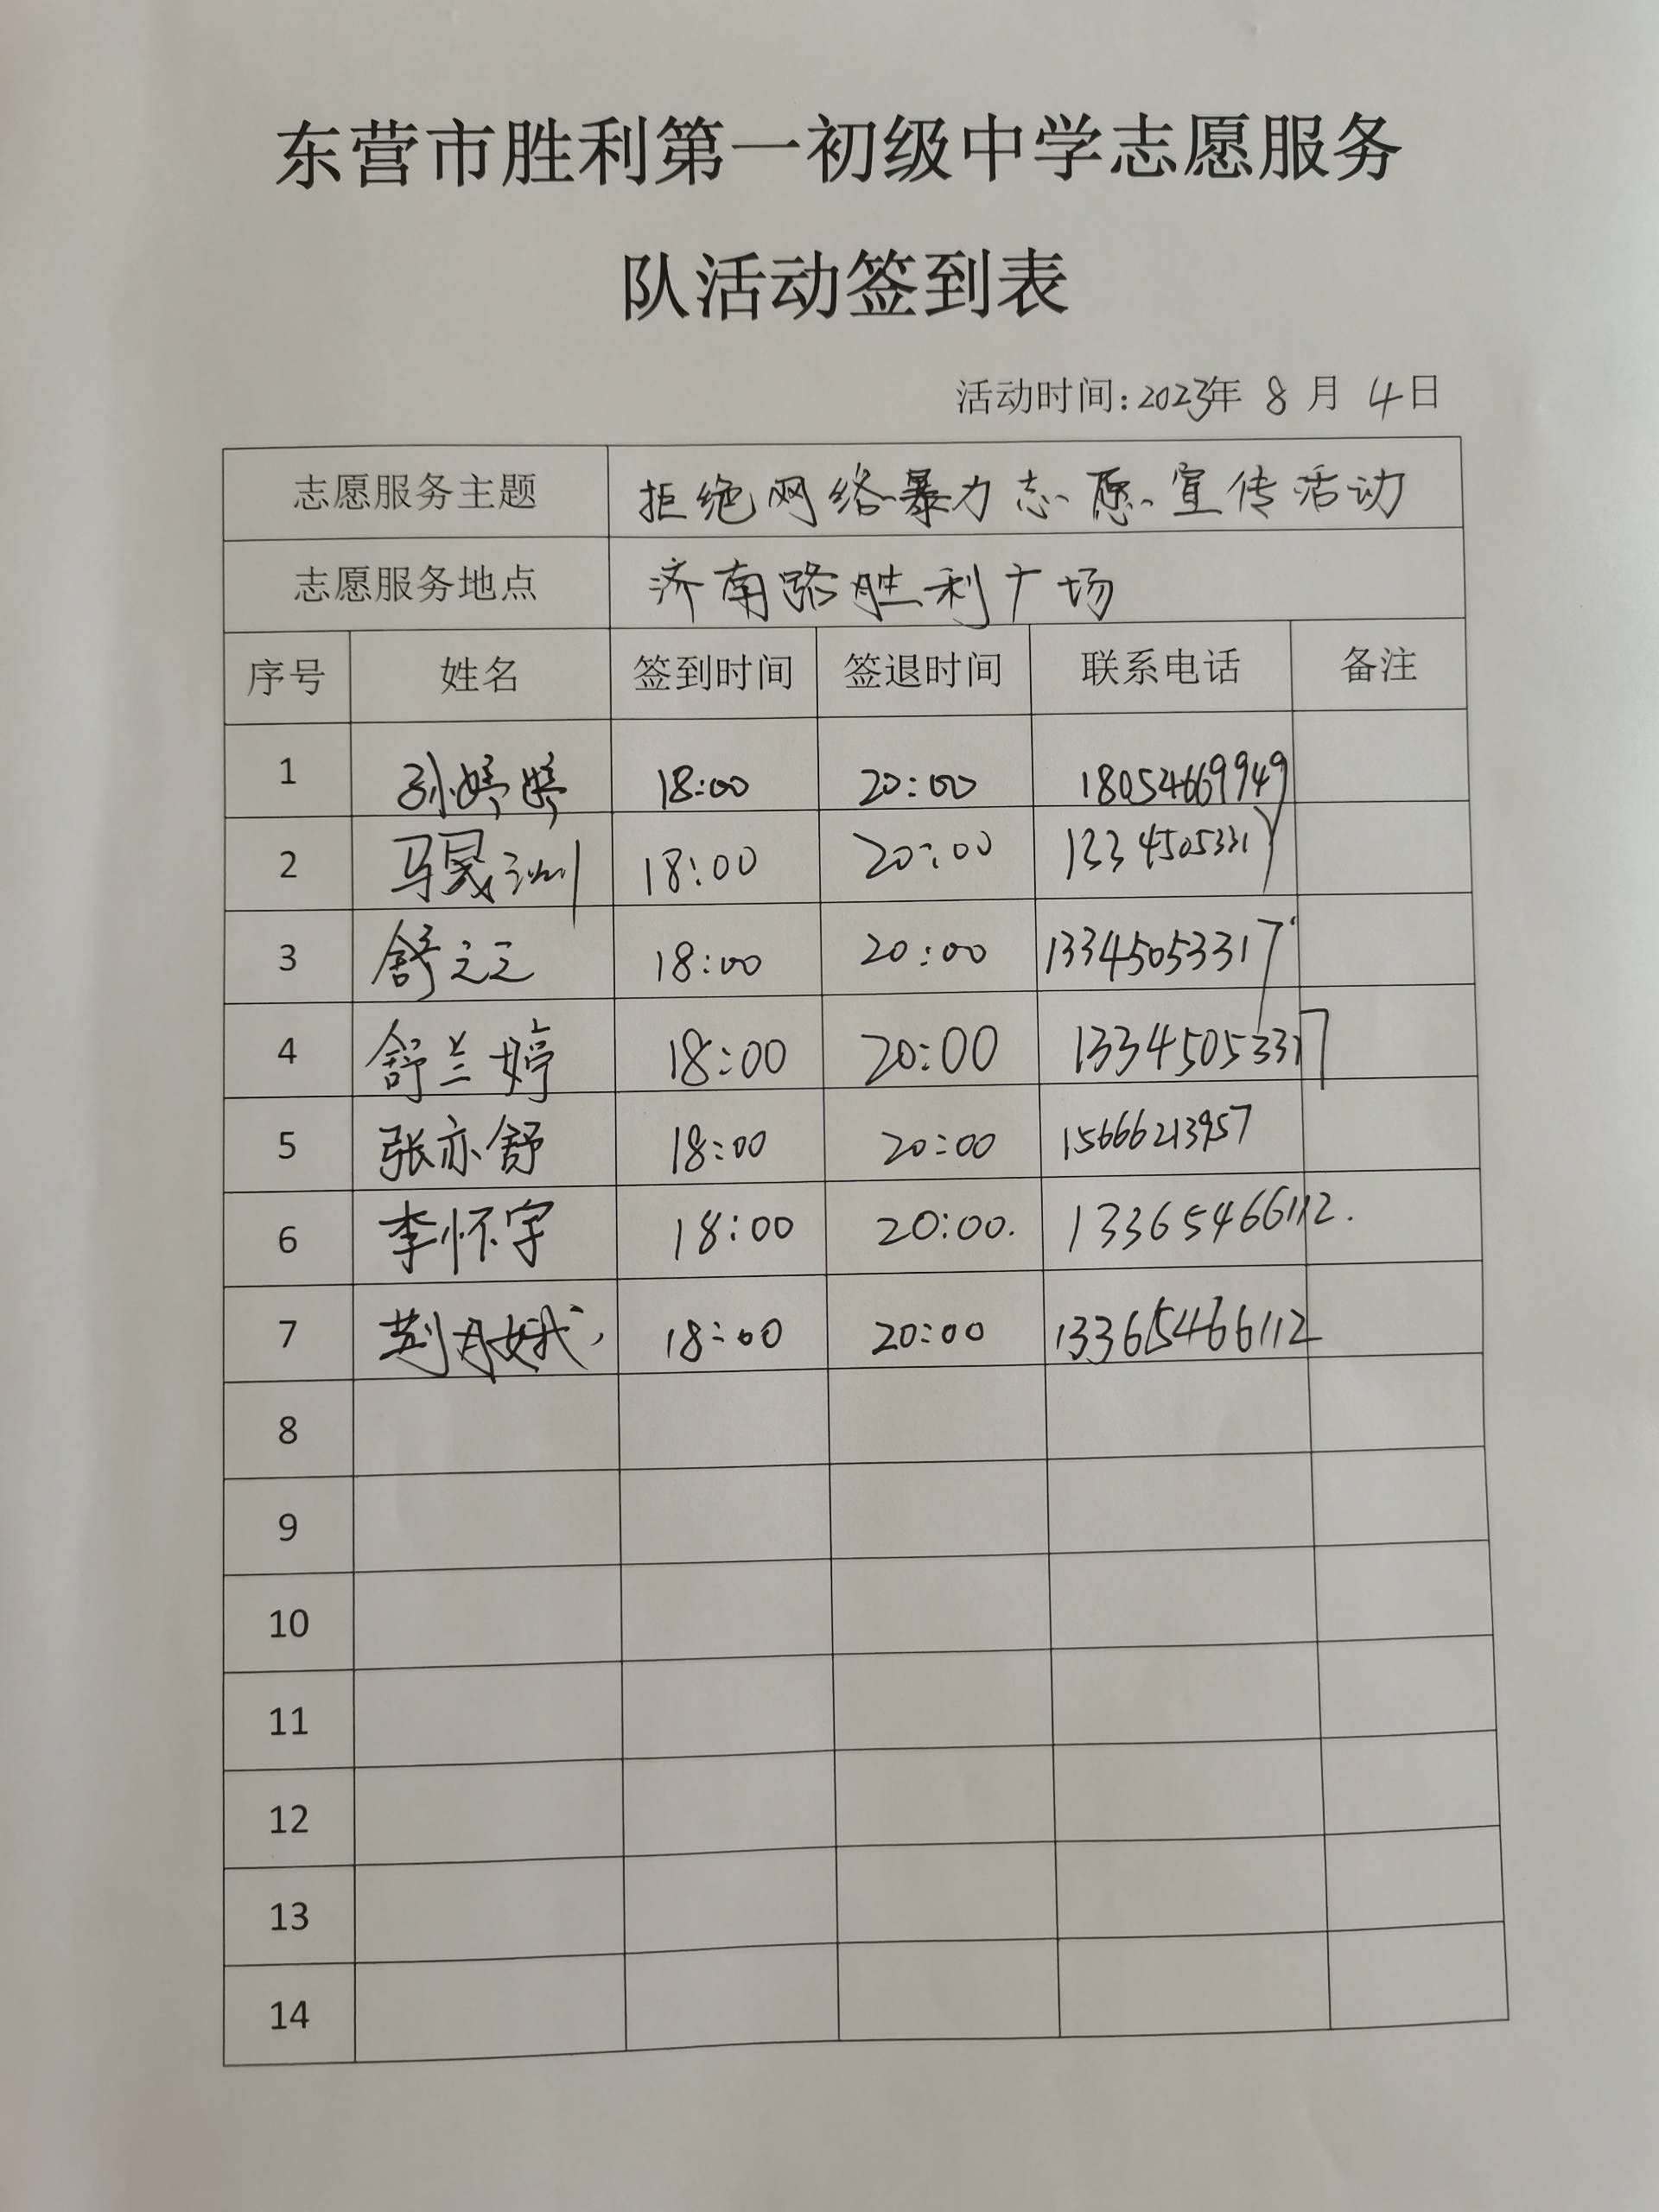 东营市胜利第一初级中学志愿服务
队活动签到表
活动时间:2023年 8 月 4日
志愿服务主题 拒绝网络暴力志愿宣传活动
志愿服务地点 济南路胜利广场
序号 姓名 签到时间 签退时间 联系电话 备注
1 孙婷婷 18:00 20:00 18054669949
2 马晟洲 18:00 20:00 13345053317
3 舒 18:00 20:00 13345053317
4 舒兰婷 18:00 20:00 13345053317
5 张亦舒 18:00 20:00 15666213957
6 李怀宇 18:00 20:00. 13365466112.
7 荆月娥 18:00 20:00 13365466112
8
9
10
11
12
13
14